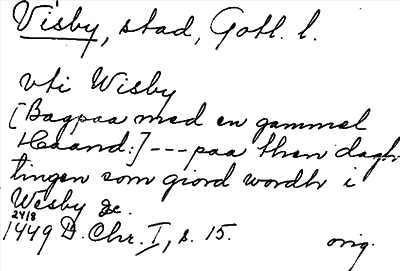 Visby, stad, Gotl. l.
vti Wisby
[Bagpaa med en gammel
Haand:] --- paa then dagh-
tingen som giord wordh i
Wesby &c.
24/8
1449 D. Chr. I, s. 15.
orig.